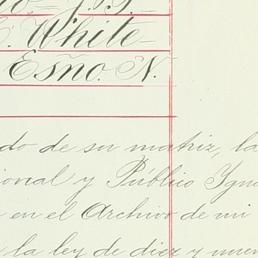 White
Esño. N.
do de su matriz, la
ional y Público Igna
en el Archivo de mi
la ley de diez y nueve